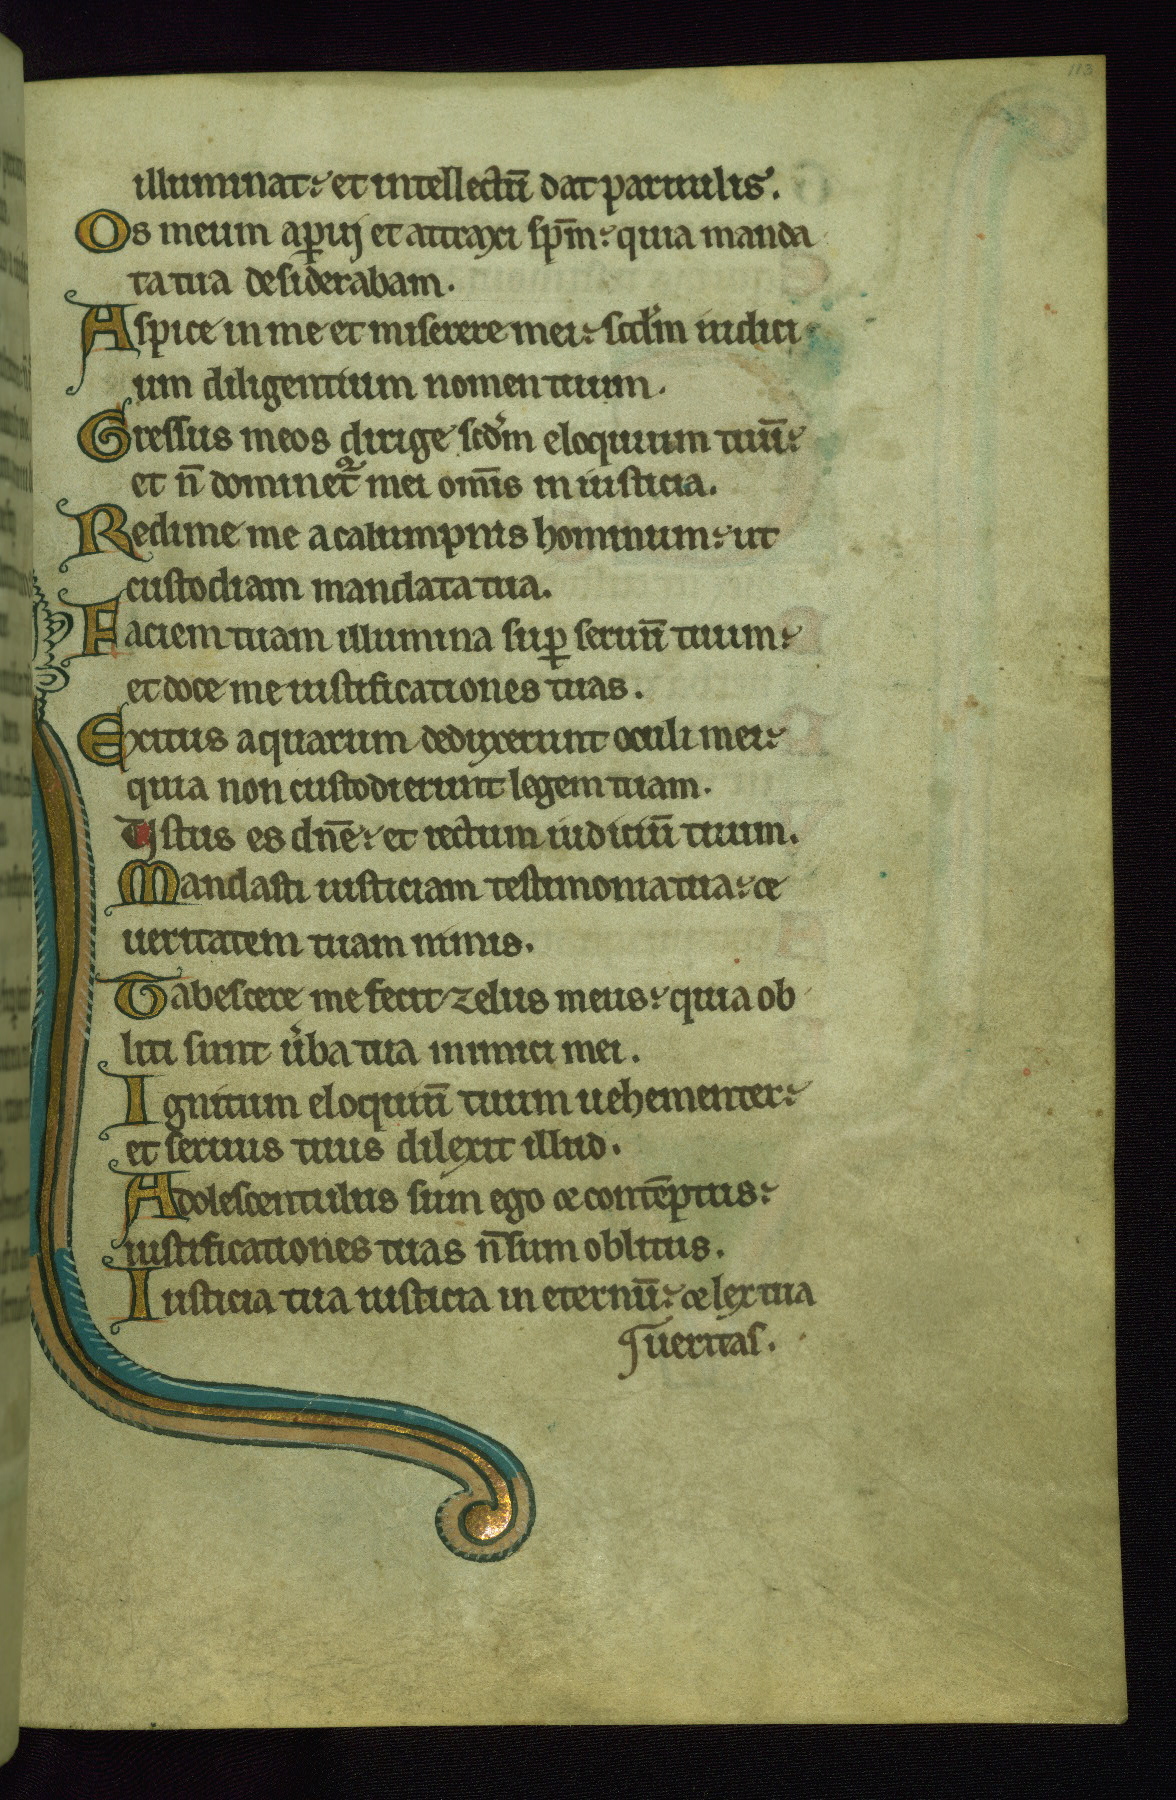 113
illuminat: et intellectū dat paruulis.
Os meum aꝑuij et attraxi sp̄m: quia manda
ta tua desiderabam.
Aspice in me et miserere mei: scd̓m iudici
um diligentium nomen tuum.
Gressus meos dirige scd̓m eloquium tuū:
et n̄ dominet᷑ mei om̄s in iusticia.
Redime me a calumpniis hominum: ut
custodiam mandata tua.
Faciem tuam illumina suꝑ seruū tuum:
et doce me iustificationes tuas.
Exitus aquarum deduxerunt oculi mei:
quia non custodierunt legem tuam.
Iustus es dn̄e: et rectum iudiciū tuum.
Mandasti iusticiam testimonia tua: et
ueritatem tuam nimis.
Tabescere me fecit zelus meus: quia ob
liti sunt u̓ba tua inimici mei.
Ignitum eloquiū tuum uehementer:
et seruus tuus dilexit illud.
Adolescentulus sum ego et contēptus:
iustificationes tuas n̄ sum oblitus.
Iusticia tua iusticia in eternū: et lex tua
ueritas.